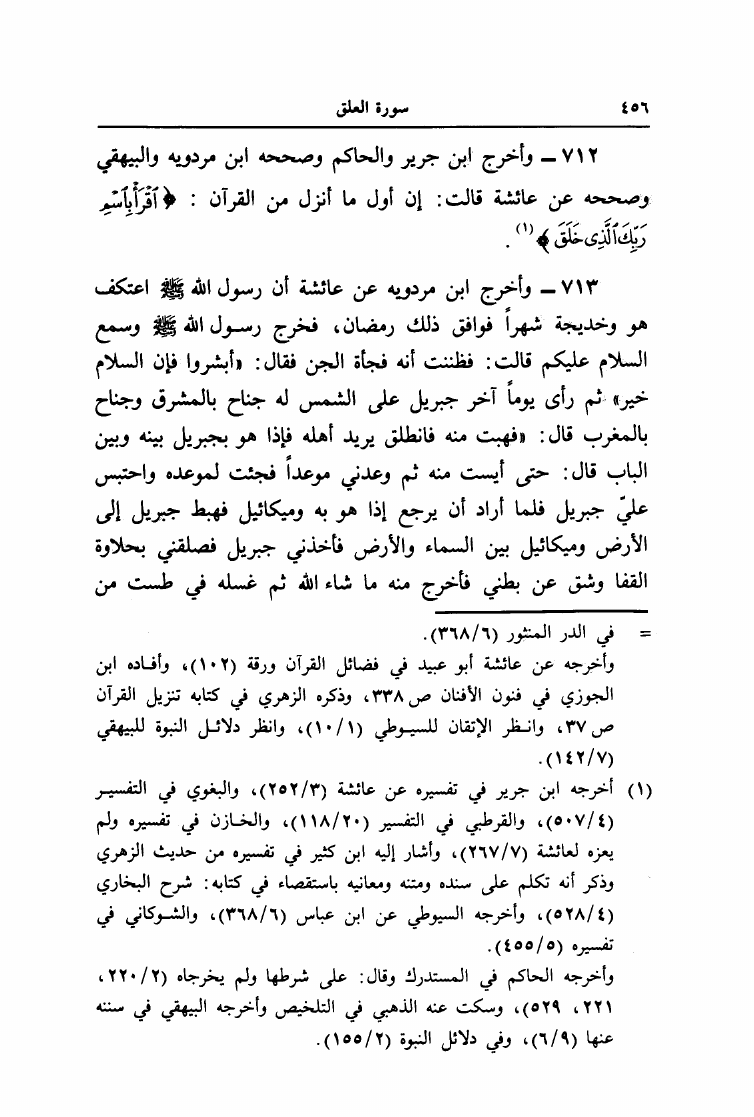 ٤٥٦ سورة العلق
٧١٢ ــ وأخرج ابن جرير والحاكم وصححه ابن مردويه والبيهقي
وصححه عن عائشة قالت: إن أول ما أنزل من القرآن : ﴿ ٱقْرَأْ بِٱسْمِ
رَبِّكَ ٱلَّذِى خَلَقَ ﴾(١) .
٧١٣ ــ وأخرج ابن مردويه عن عائشة أن رسول الله ﷺ اعتكف
هو وخديجة شهراً فوافق ذلك رمضان، فخرج رسول الله ﷺ وسمع
السلام عليكم قالت: فظننت أنه فجأة الجن فقال: «أبشروا فإن السلام
خير» ثم رأى يوماً آخر جبريل على الشمس له جناح بالمشرق وجناح
بالمغرب قال: «فهبت منه فانطلق يريد أهله فإذا هو بجبريل بينه وبين
الباب قال: حتى أيست منه ثم وعدني موعداً فجئت لموعده واحتبس
عليّ جبريل فلما أراد أن يرجع إذا هو به وميكائيل فهبط جبريل إلى
الأرض وميكائيل بين السماء والأرض فأخذني جبريل فصلقني بحلاوة
القفا وشق عن بطني فأخرج منه ما شاء الله ثم غسله في طست من
= في الدر المنثور (٣٦٨/٦).
وأخرجه عن عائشة أبو عبيد في فضائل القرآن ورقة (١٠٢)، وأفاده ابن
الجوزي في فنون الأفنان ص٣٣٨، وذكره الزهري في كتابه تنزيل القرآن
ص٣٧، وانظر الإتقان للسيوطي (١٠/١)، وانظر دلائل النبوة للبيهقي
(١٤٢/٧).
(١) أخرجه ابن جرير في تفسيره عن عائشة (٢٥٢/٣)، والبغوي في التفسير
(٥٠٧/٤)، والقرطبي في التفسير (١١٨/٢٠)، والخازن في تفسيره ولم
يعزه لعائشة (٢٦٧/٧)، وأشار إليه ابن كثير في تفسيره من حديث الزهري
وذكر أنه تكلم على سنده ومتنه ومعانيه باستقصاء في كتابه: شرح البخاري
(٥٢٨/٤)، وأخرجه السيوطي عن ابن عباس (٣٦٨/٦)، والشوكاني في
تفسيره (٤٥٥/٥).
وأخرجه الحاكم في المستدرك وقال: على شرطها ولم يخرجاه (٢٢٠/٢،
٢٢١، ٥٢٩)، وسكت عنه الذهبي في التلخيص وأخرجه البيهقي في سننه
عنها (٦/٩)، وفي دلائل النبوة (١٥٥/٢).